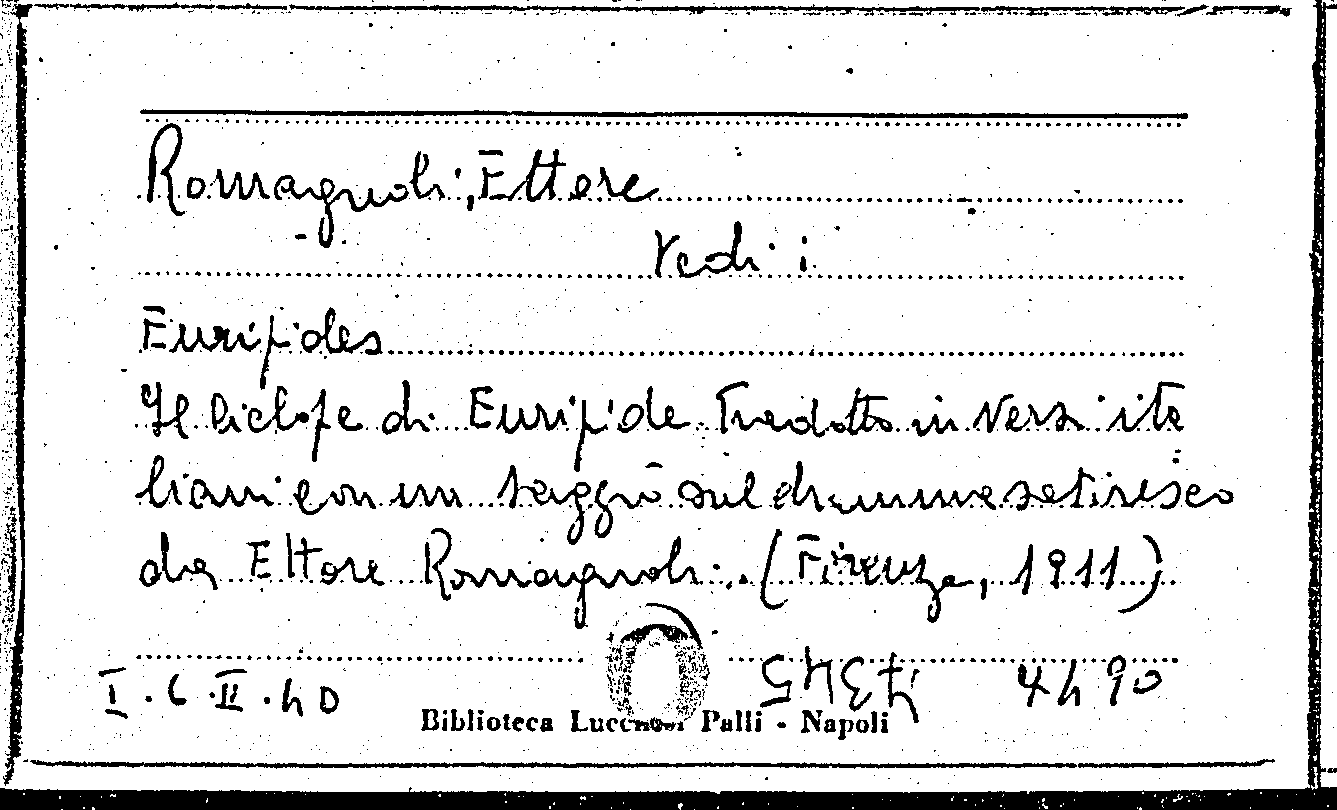 Romagnoli, Ettore
Vedi:
Euripides
Il Ciclope di Euripide Tradotto in versi ita
liani con un saggio sul dramma satiresco
da Ettore Romagnoli. (Firenze, 1911)
I. 6. II. 40
Biblioteca Lucchesi Palli - Napoli